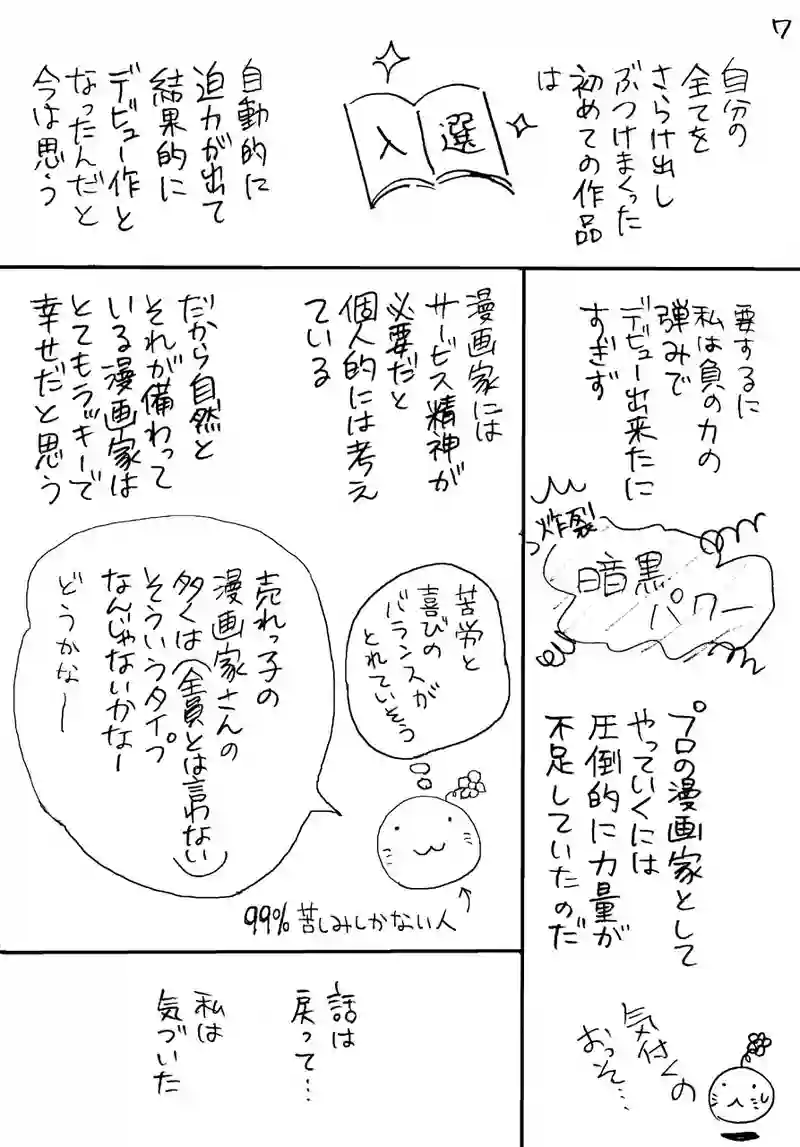 7
自分の
全てを
さらけ出し
ぶつけまくった
初めての作品
は
入選
自動的に
迫力が出て
結果的に
デビュー作と
なったんだと
今は思う
要するに
私は負の力の
弾みで
デビュー出来たに
すぎず
炸裂
暗黒
パワー
プロの漫画家として
やっていくには
圧倒的に力量が
不足していたのだ
気付くの
おっそ…
漫画家には
サービス精神が
必要だと
個人的には考え
ている
だから自然と
それが備わって
いる漫画家は
とてもラッキーで
幸せだと思う
苦労と
喜びの
バランスが
とれていそう
売れっ子の
漫画家さんの
多くは(全員とは言わない)
そういうタイプ
なんじゃないかなー
どうかなー
99%苦しみしかない人
話は
戻って…
私は
気づいた